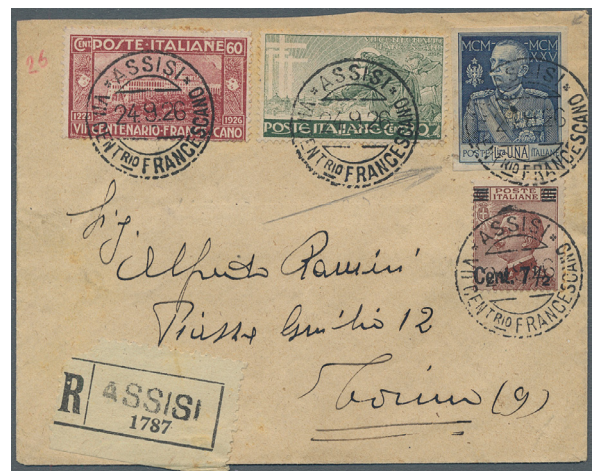 26
CENT POSTE·ITALIANE 60
1226 1926
VII CENTENARIO·FRANCESCANO
*ASSISI*
24.9.26
VII CENTRIO FRANCESCANO
POSTE ITALIANE Cent. 20
*ASSISI*
24.9.26
VII CENTRIO FRANCESCANO
MCM MCM
XXV
POSTE L. UNA ITALIANE
ASSISI
VII CENTRIO FRANCESCANO
POSTE
ITALIANE
Cent. 7½
*ASSISI*
VII CENTRIO FRANCESCANO
Sig.
Alfredo
12
Torino (9)
R ASSISI
1787